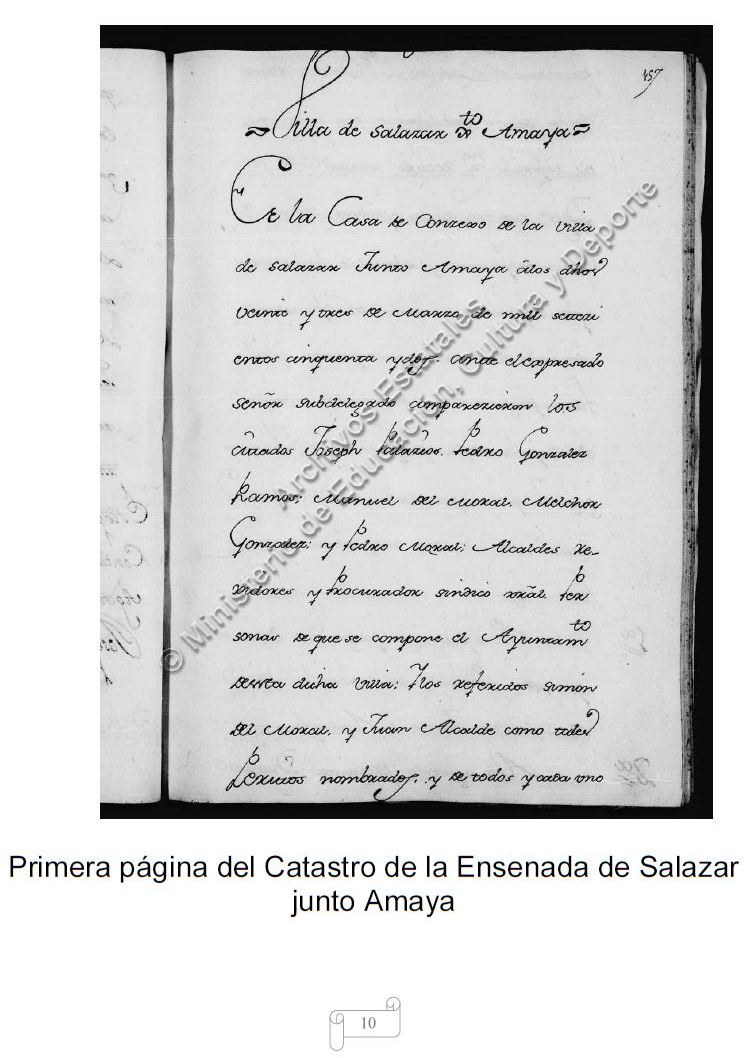 457
Villa de Salazar Jto Amaya
En la Casa de Conzexo de la villa
de Salazar Junto Amaya â los dhos
veinte y tres de Marzo de mil setezi
entos cinquenta y dos. ante el expresado
señor subdelegado comparezieron los
citados Joseph Palazios, Pedro Gonzalez
Ramos; Manuel del Moral, Melchor
Gonzalez; y Pedro Moral; Alcaldes re-
xidores y Procurador sindico xrãl, Per
sonas de que se compone el Ayuntamto
de esta dicha villa; Y los referidos Simón
del Moral, y Juan Alcalde como tales
Peritos nombrados, y de todos y cada uno
© Ministerio de Educación, Cultura y Deporte
Archivos Estatales
Primera página del Catastro de la Ensenada de Salazar
junto Amaya
10